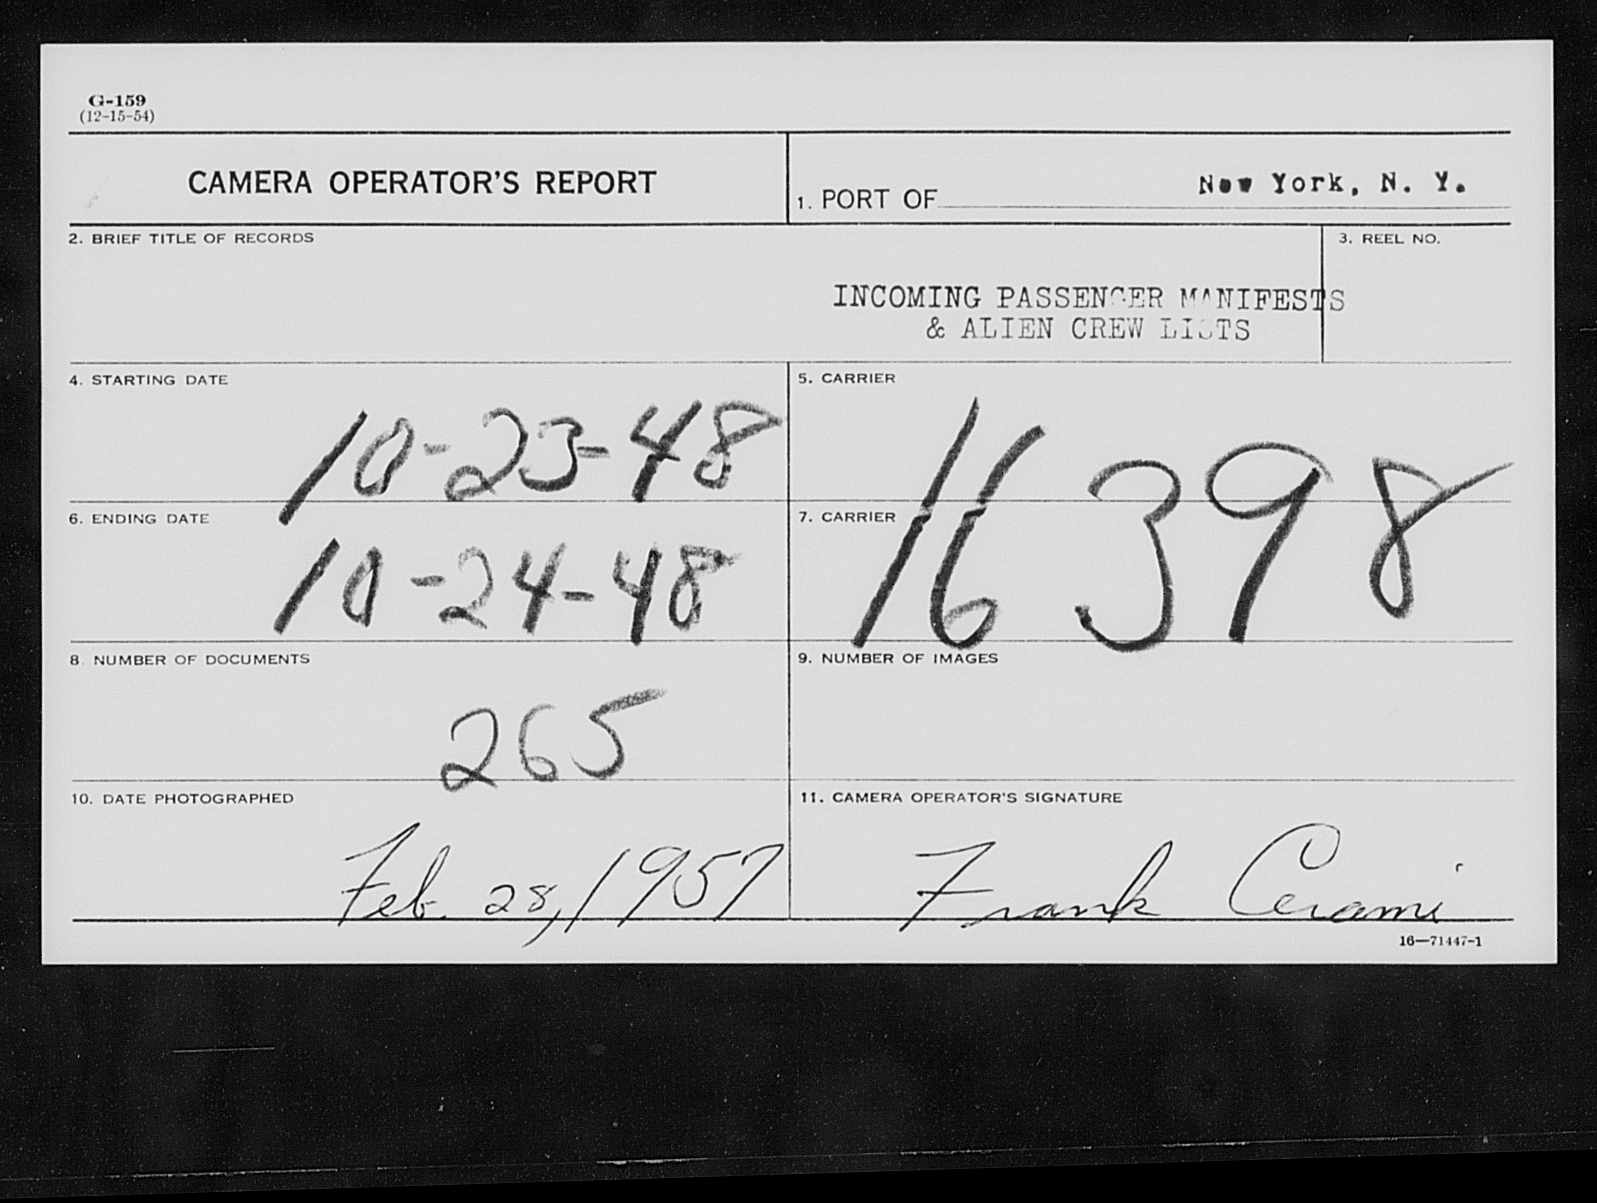 G-159
(12-15-54)
CAMERA OPERATOR'S REPORT
1. PORT OF New York, N. Y.
2. BRIEF TITLE OF RECORDS
3. REEL NO.
INCOMING PASSENGER MANIFESTS
& ALIEN CREW LISTS
4. STARTING DATE
10-23-48
5. CARRIER
6. ENDING DATE
10-24-48
7. CARRIER
16398
8. NUMBER OF DOCUMENTS
265
9. NUMBER OF IMAGES
10. DATE PHOTOGRAPHED
Feb. 28, 1957
11. CAMERA OPERATOR'S SIGNATURE
Frank Cerami
16—71447-1